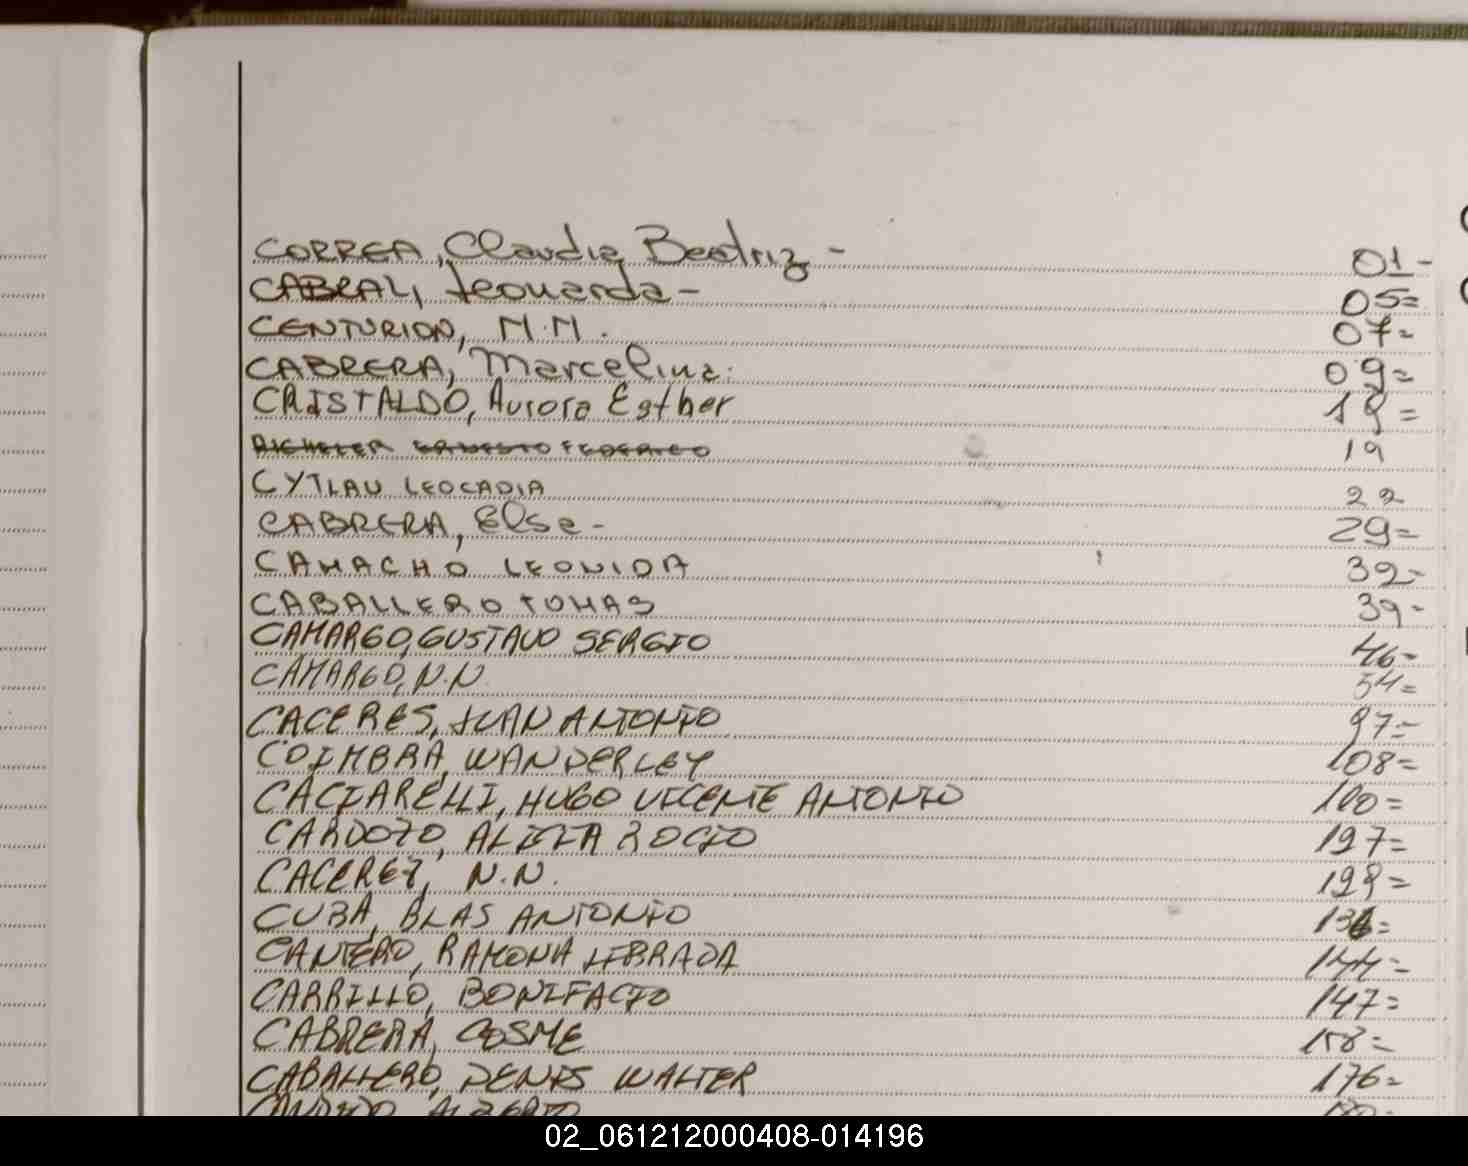 CORREA, Claudia Beatriz - 01-
CABRAL, Leonarda - 05=
CENTURION, M.M. 07=
CABRERA, Marcelina. 09=
CRISTALDO, Aurora Esther 18=
ERNESTO FEDERICO 19
CYTLAU LEOCADIA 22
CABRERA, Elsa - 29=
CAMACHO LEONIDA 32-
CABALLERO TOMAS 39-
CAMARGO, GUSTAVO SERGIO 46=
CAMARGO, N.N. 54=
CACERES, JUAN ANTONIO 97=
COIMBRA, WANDERLEY 108=
CACIARELLI, HUGO VICENTE ANTONIO
CARDOZO, ALICIA ROCIO
CACEREZ, N.N.
CUBA, BLAS ANTONIO
CANTERO, RAMONA LIBRADA 144=
CARRILLO, BONIFACIO 147=
CABRERA, COSME 158=
CABALLERO, DENIS WALTER 176=
ALBERTO
02_061212000408-014196